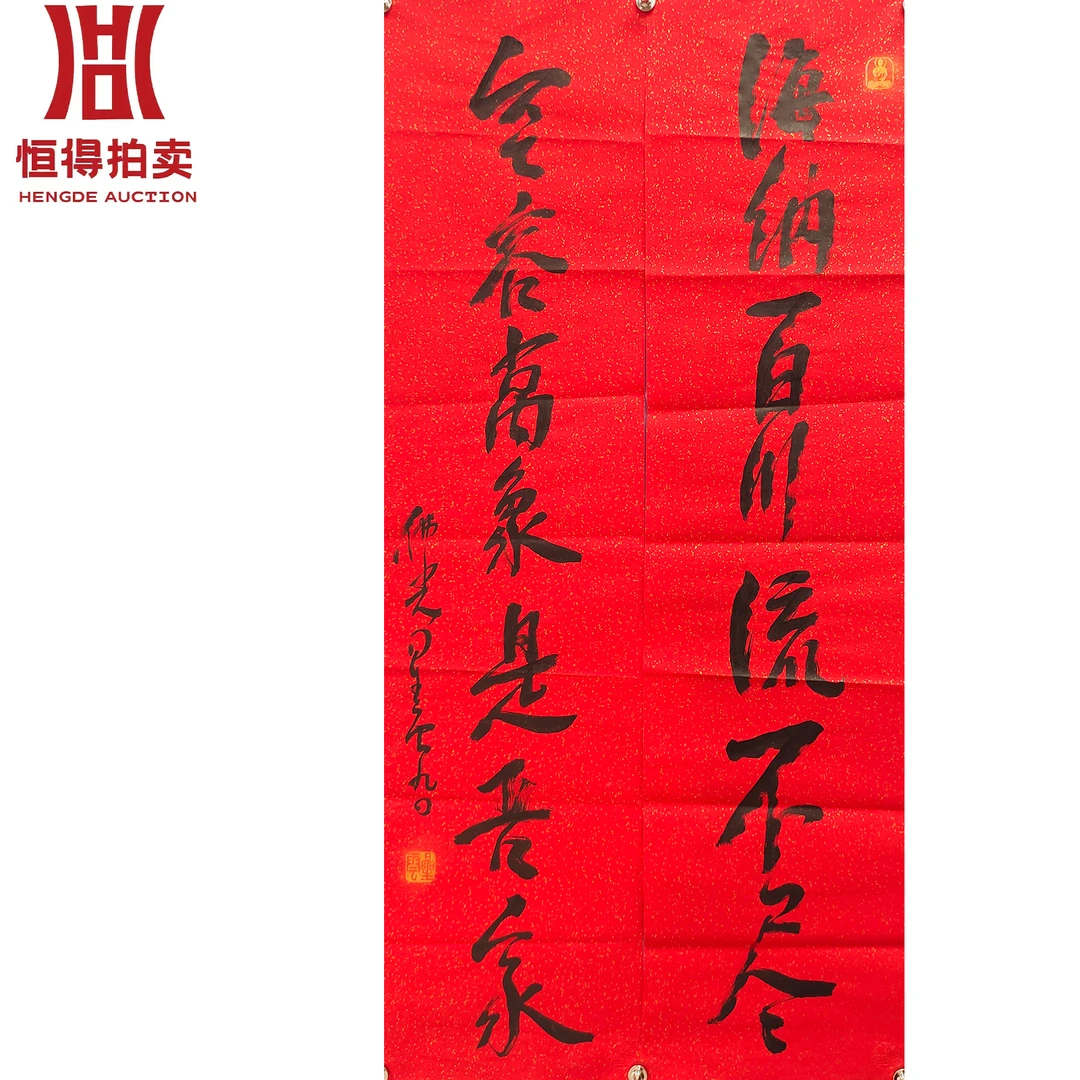 恒得拍卖
HENGDE AUCTION
海纳百川流不尽
空容萬象是吾家
佛光星雲九〇
星雲